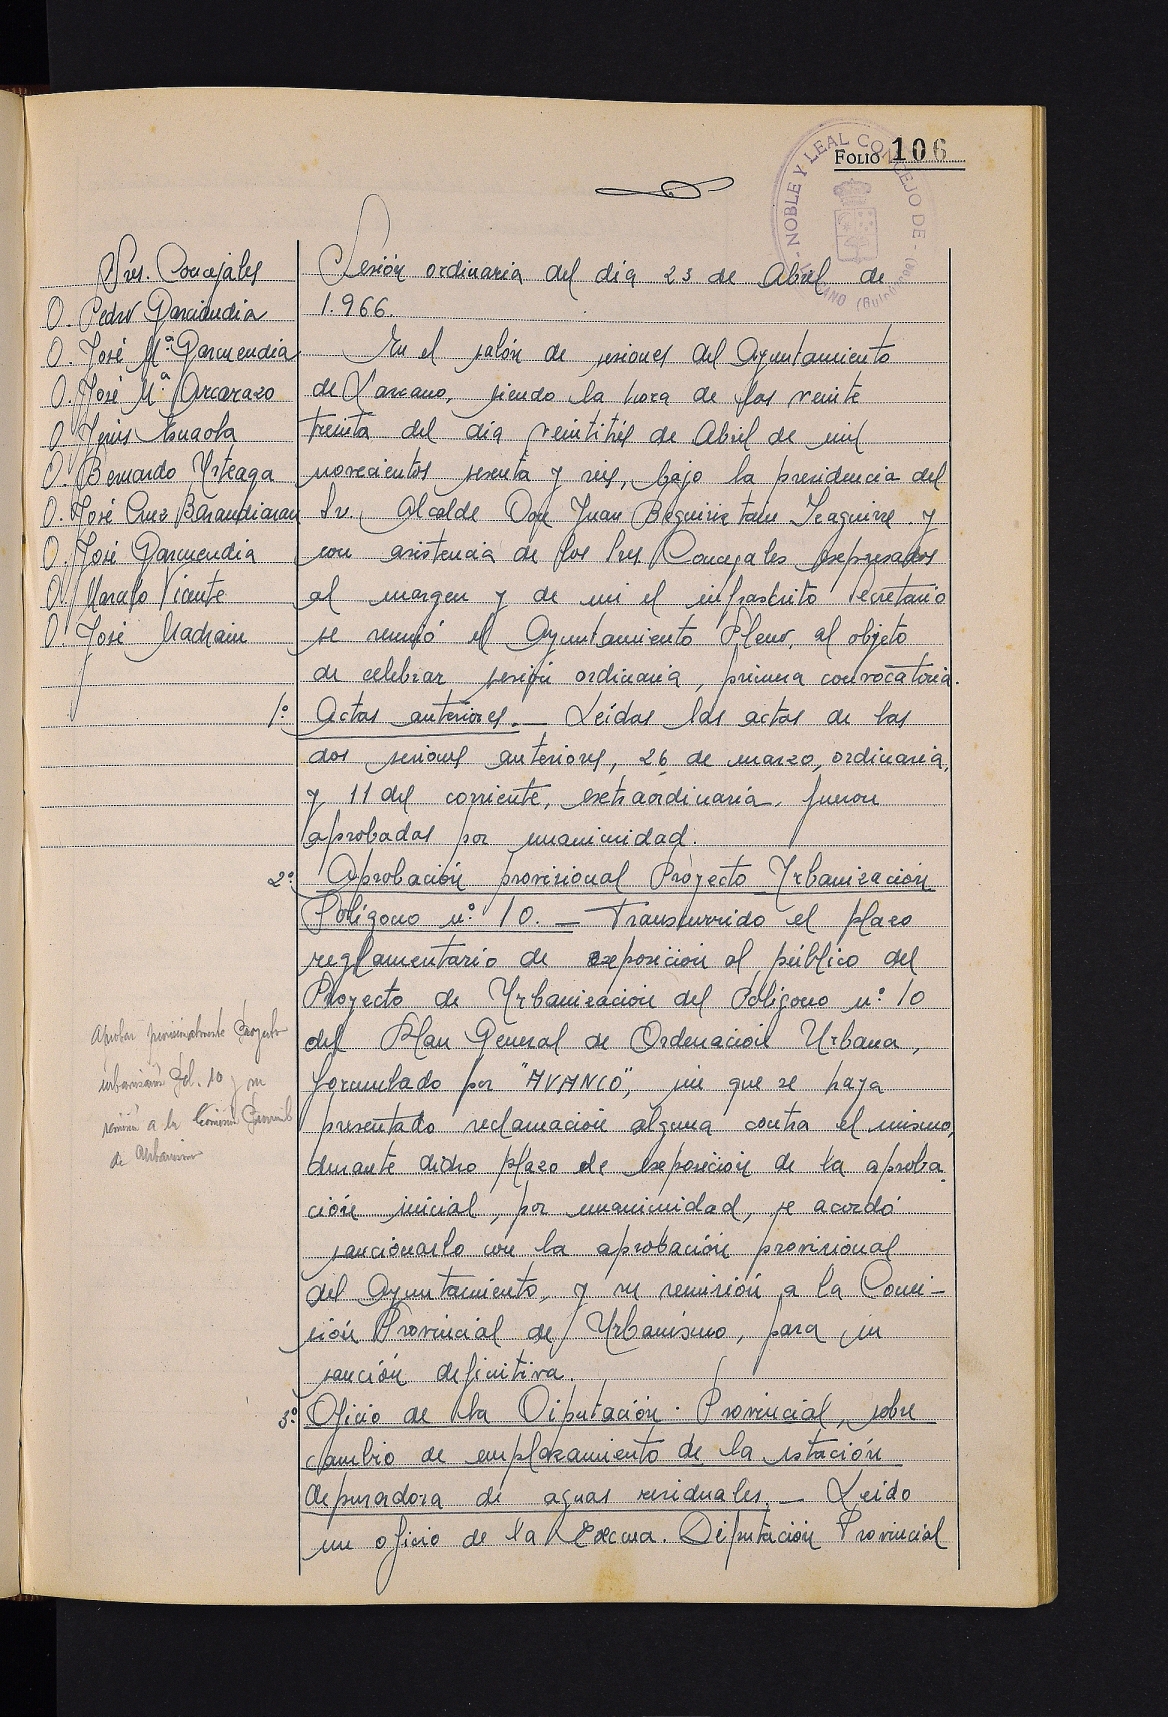 FOLIO 106
NOBLE Y LEAL CONCEJO DE
Sres. Concejales
D. Pedro Garciandia
D. José Mª Garmendia
D. José Mª Arcarazo
D. Bernardo Urteaga
D. José Cruz Barandiaran
D. José Garmendia
D. Marcelo Vicente
D. José Madrain
Sesión ordinaria del día 23 de Abril de
1.966.
En el salón de sesiones del Ayuntamiento
de Lazcano, siendo la hora de las veinte
treinta del día veintitrés de Abril de mil
novecientos sesenta y seis, bajo la presidencia del
Sr. Alcalde Don Juan Beguiristain Izaguirre y
con asistencia de los Sres. Concejales expresados
al margen y de mi el infrascrito Secretario
se reunió el Ayuntamiento Pleno, al objeto
de celebrar sesión ordinaria, primera convocatoria.
1º Actas anteriores. — Leídas las actas de las
dos sesiones anteriores, 26 de marzo, ordinaria,
y 11 del corriente, extraordinaria, fueron
aprobadas por unanimidad.
2º Aprobación provisional Proyecto Urbanización
Polígono nº 10. — Transcurrido el plazo
reglamentario de exposición al público del
Proyecto de Urbanización del Polígono nº 10
del Plan General de Ordenación Urbana,
formulado por "AVANCO", sin que se haya
presentado reclamación alguna contra el mismo,
durante dicho plazo de exposición de la aproba-
ción inicial, por unanimidad, se acordó
sancionarlo con la aprobación provisional
del Ayuntamiento, y su remisión a la Comi-
sión Provincial de Urbanismo, para su
sanción definitiva.
Aprobar provisionalmente Proyecto
urbanización Pol. 10 y su
remisión a la Comisión Provincial
de Urbanismo
3º Oficio de la Diputación Provincial, sobre
cambio de emplazamiento de la estación
depuradora de aguas residuales. — Leido
un oficio de la Excma. Diputación Provincial